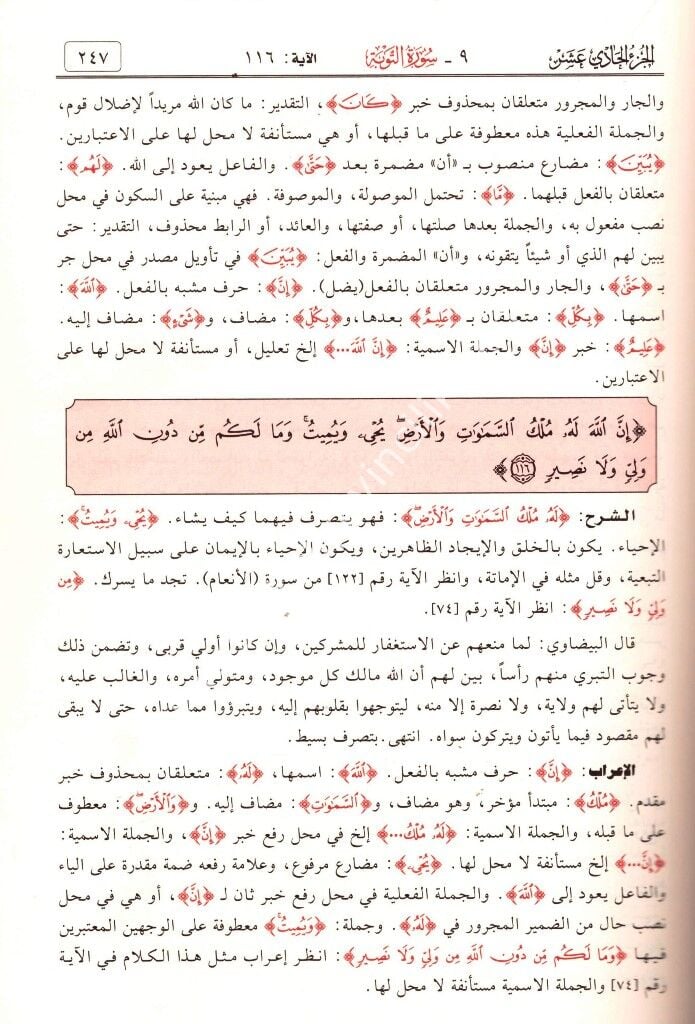 الجزء الحادي عشر ٩ - سورة التوبة الآية: ١١٦ ٢٤٧
والجار والمجرور متعلقان بمحذوف خبر ﴿كَانَ﴾، التقدير: ما كان الله مريداً لإضلال قوم،
والجملة الفعلية هذه معطوفة على ما قبلها، أو هي مستأنفة لا محل لها على الاعتبارين.
﴿يُبَيِّنَ﴾: مضارع منصوب بـ «أن» مضمرة بعد ﴿حَتَّى﴾. والفاعل يعود إلى الله. ﴿لَهُم﴾:
متعلقان بالفعل قبلهما. ﴿مَّا﴾: تحتمل الموصولة، والموصوفة. فهي مبنية على السكون في محل
نصب مفعول به، والجملة بعدها صلتها، أو صفتها، والعائد، أو الرابط محذوف، التقدير: حتى
يبين لهم الذي أو شيئاً يتقونه، و«أن» المضمرة والفعل: ﴿يُبَيِّنَ﴾ في تأويل مصدر في محل جر
بـ ﴿حَتَّى﴾، والجار والمجرور متعلقان بالفعل(يضل). ﴿إِنَّ﴾: حرف مشبه بالفعل. ﴿اللَّهَ﴾:
اسمها. ﴿بِكُلِّ﴾: متعلقان بـ ﴿عَلِيمٌ﴾ بعدها،و﴿بِكُلِّ﴾: مضاف، و﴿شَيْءٍ﴾: مضاف إليه.
﴿عَلِيمٌ﴾: خبر ﴿إِنَّ﴾ والجملة الاسمية: ﴿إِنَّ اللَّهَ...﴾ إلخ تعليل، أو مستأنفة لا محل لها على
الاعتبارين.
﴿إِنَّ اللَّهَ لَهُ مُلْكُ السَّمَوَاتِ وَالْأَرْضِ يُحْيِ وَيُمِيتُ وَمَا لَكُم مِّن دُونِ اللَّهِ مِن
وَلِيٍّ وَلَا نَصِيرٍ ١١٦﴾
الشرح: ﴿لَهُ مُلْكُ السَّمَوَاتِ وَالْأَرْضِ﴾: فهو يتصرف فيهما كيف يشاء. ﴿يُحْيِ وَيُمِيتُ﴾:
الإحياء. يكون بالخلق والإيجاد الظاهرين، ويكون الإحياء بالإيمان على سبيل الاستعارة
التبعية، وقل مثله في الإماتة، وانظر الآية رقم [١٢٢] من سورة (الأنعام). تجد ما يسرك. ﴿مِن
وَلِيٍّ وَلَا نَصِيرٍ﴾: انظر الآية رقم [٧٤].
قال البيضاوي: لما منعهم عن الاستغفار للمشركين، وإن كانوا أولي قربى، وتضمن ذلك
وجوب التبري منهم رأساً، بين لهم أن الله مالك كل موجود، ومتولي أمره، والغالب عليه،
ولا يتأتى لهم ولاية، ولا نصرة إلا منه، ليتوجهوا بقلوبهم إليه، ويتبرؤوا مما عداه، حتى لا يبقى
لهم مقصود فيما يأتون ويتركون سواه. انتهى.بتصرف بسيط.
الإعراب: ﴿إِنَّ﴾: حرف مشبه بالفعل. ﴿اللَّهَ﴾: اسمها، ﴿لَهُ﴾: متعلقان بمحذوف خبر
مقدم. ﴿مُلْكُ﴾: مبتدأ مؤخر، وهو مضاف، و﴿السَّمَوَاتِ﴾: مضاف إليه. و﴿وَالْأَرْضِ﴾: معطوف
على ما قبله، والجملة الاسمية: ﴿لَهُ مُلْكُ...﴾ إلخ في محل رفع خبر ﴿إِنَّ﴾، والجملة الاسمية:
﴿إِنَّ...﴾ إلخ مستأنفة لا محل لها. ﴿يُحْيِ﴾: مضارع مرفوع، وعلامة رفعه ضمة مقدرة على الياء
والفاعل يعود إلى ﴿اللَّهَ﴾. والجملة الفعلية في محل رفع خبر ثان لـ ﴿إِنَّ﴾، أو هي في محل
نصب حال من الضمير المجرور في ﴿لَهُ﴾. وجملة: ﴿وَيُمِيتُ﴾ معطوفة على الوجهين المعتبرين
فيها ﴿وَمَا لَكُم مِّن دُونِ اللَّهِ مِن وَلِيٍّ وَلَا نَصِيرٍ﴾: انظر إعراب مثل هذا الكلام في الآية
رقم [٧٤] والجملة الاسمية مستأنفة لا محل لها.